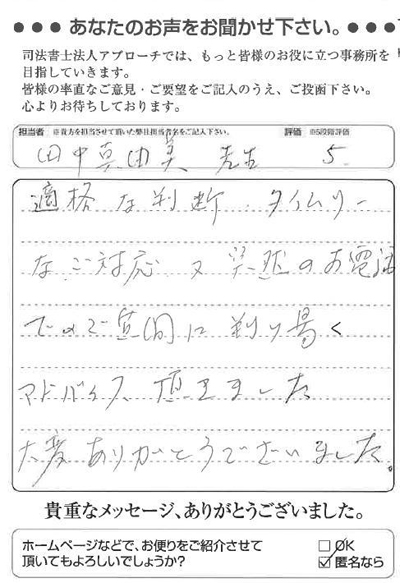 ●●● あなたのお声をお聞かせ下さい。●●●
司法書士法人アプローチでは、もっと皆様のお役に立つ事務所を
目指していきます。
皆様の率直なご意見・ご要望をご記入のうえ、ご投函下さい。
心よりお待ちしております。
担当者 ※貴方を担当させて頂いた弊社担当者名をご記入下さい。 評価 ※5段階評価
田中真由美 先生 5
適格な判断、タイムリー
なご対応 又 突然のお電話
でのご質問に判り易く
アドバイス頂きました
大変ありがとうございました。
貴重なメッセージ、ありがとうございました。
ホームページなどで、お便りをご紹介させて
頂いてもよろしいでしょうか？
□ OK
☑ 匿名なら